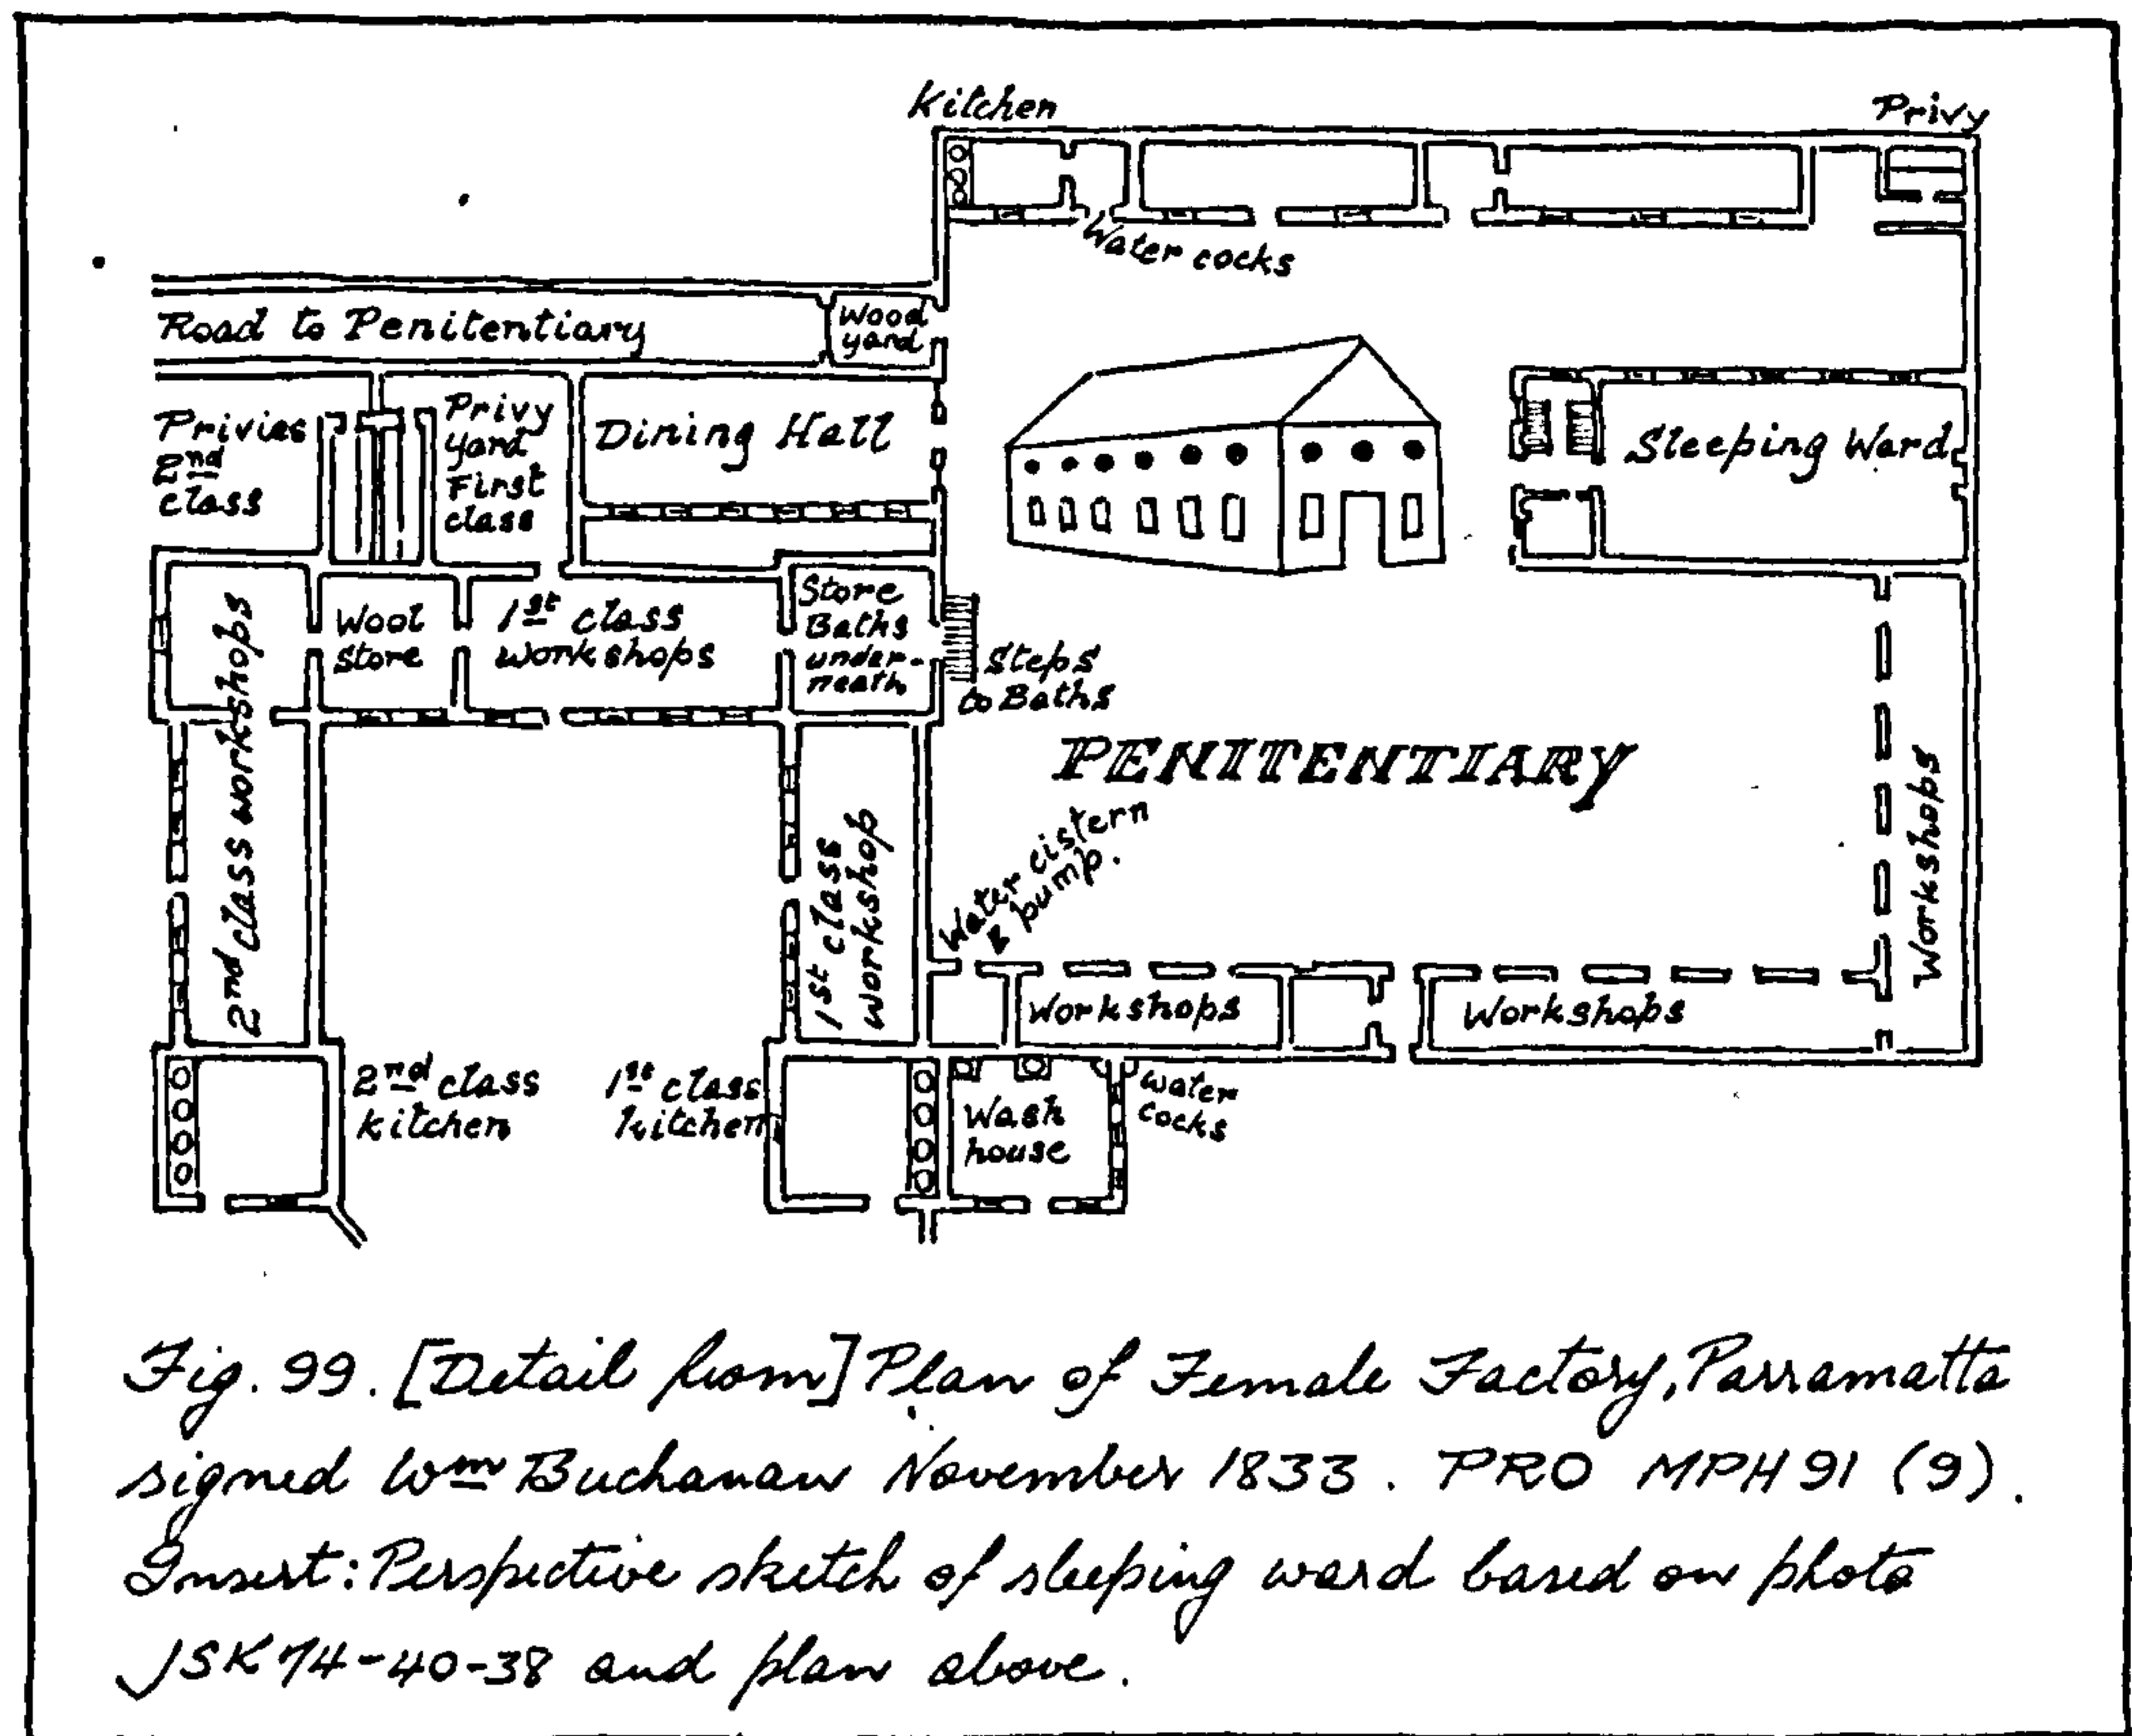 Kitchen
Privy
Water cocks
Road to Penitentiary
Wood
yard
Privies
2nd
class
Privy
yard
First
class
Dining Hall
Sleeping Ward
2nd class workshops
Wool
store
1st class
workshops
Store
Baths
under-
neath
Steps
to Baths
PENITENTIARY
Water cistern
pump.
1st class
workshop
Workshops
Workshops
Workshops
2nd class
kitchen
1st class
kitchen
Wash
house
Water
cocks
Fig. 99. [Detail from] Plan of Female Factory, Parramatta
signed Wm Buchanan November 1833. PRO MPH 91 (9).
Insert: Perspective sketch of sleeping ward based on photo
JSK 74-40-38 and plan above.